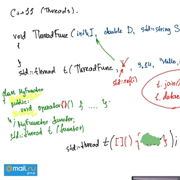 C++11 (Threads).
void ThreadFunc (int& I, double D, std::string S
std::thread t (ThreadFunc, 9,14, "Hello,
t.join(
class MyFunctor
public:
void operator()() { ... };
MyFunctor functor;
std::thread t (functor)
std::thread t([](){ });
@mail.ru